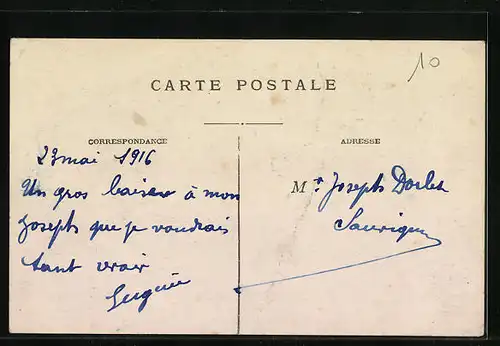 10
CARTE POSTALE
CORRESPONDANCE
ADRESSE
23 mai 1916
Un gros baiser à mon
Joseph que je voudrais
tant voir
Mr. Joseph